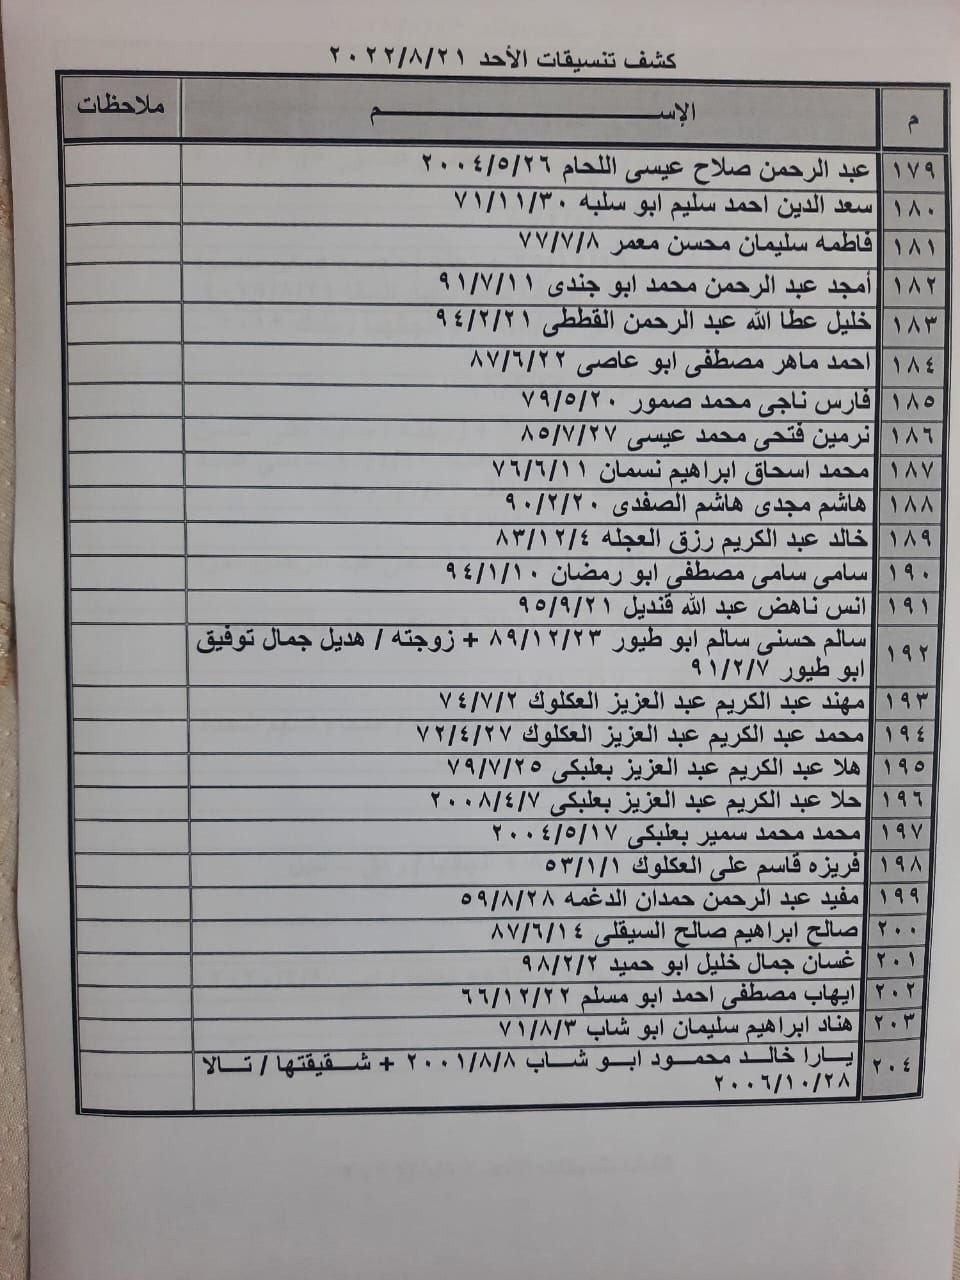 كشف تنسيقات الأحد ٢٠٢٢/٨/٢١
م الإســـــــــم ملاحظات
١٧٩ عبد الرحمن صلاح عيسى اللحام ٢٠٠٤/٥/٢٦
١٨٠ سعد الدين احمد سليم ابو سلبه ٧١/١١/٣٠
١٨١ فاطمه سليمان محسن معمر ٧٧/٧/٨
١٨٢ أمجد عبد الرحمن محمد ابو جندى ٩١/٧/١١
١٨٣ خليل عطا الله عبد الرحمن القططى ٩٤/٢/٢١
١٨٤ احمد ماهر مصطفى ابو عاصى ٨٧/٦/٢٢
١٨٥ فارس ناجى محمد صمور ٧٩/٥/٢٠
١٨٦ نرمين فتحى محمد عيسى ٨٥/٧/٢٧
١٨٧ محمد اسحاق ابراهيم نسمان ٧٦/٦/١١
١٨٨ هاشم مجدى هاشم الصفدى ٩٠/٢/٢٠
١٨٩ خالد عبد الكريم رزق العجله ٨٣/١٢/٤
١٩٠ سامى سامى مصطفى ابو رمضان ٩٤/١/١٠
١٩١ انس ناهض عبد الله قنديل ٩٥/٩/٢١
١٩٢ سالم حسنى سالم ابو طيور ٨٩/١٢/٢٣ + زوجته / هديل جمال توفيق
ابو طيور ٩١/٢/٧
١٩٣ مهند عبد الكريم عبد العزيز العكلوك ٧٤/٧/٢
١٩٤ محمد عبد الكريم عبد العزيز العكلوك ٧٢/٤/٢٧
١٩٥ هلا عبد الكريم عبد العزيز بعلبكى ٧٩/٧/٢٥
١٩٦ حلا عبد الكريم عبد العزيز بعلبكى ٢٠٠٨/٤/٧
١٩٧ محمد محمد سمير بعلبكى ٢٠٠٤/٥/١٧
١٩٨ فريزه قاسم على العكلوك ٥٣/١/١
١٩٩ مفيد عبد الرحمن حمدان الدغمه ٥٩/٨/٢٨
٢٠٠ صالح ابراهيم صالح السيقلى ٨٧/٦/١٤
٢٠١ غسان جمال خليل ابو حميد ٩٨/٢/٢
٢٠٢ ايهاب مصطفى احمد ابو مسلم ٦٦/١٢/٢٢
٢٠٣ هناد ابراهيم سليمان ابو شاب ٧١/٨/٣
٢٠٤ يــارا خالــد محمــود ابــو شــاب ٢٠٠١/٨/٨ + شــقيقتها / تــالا
٢٠٠٦/١٠/٢٨